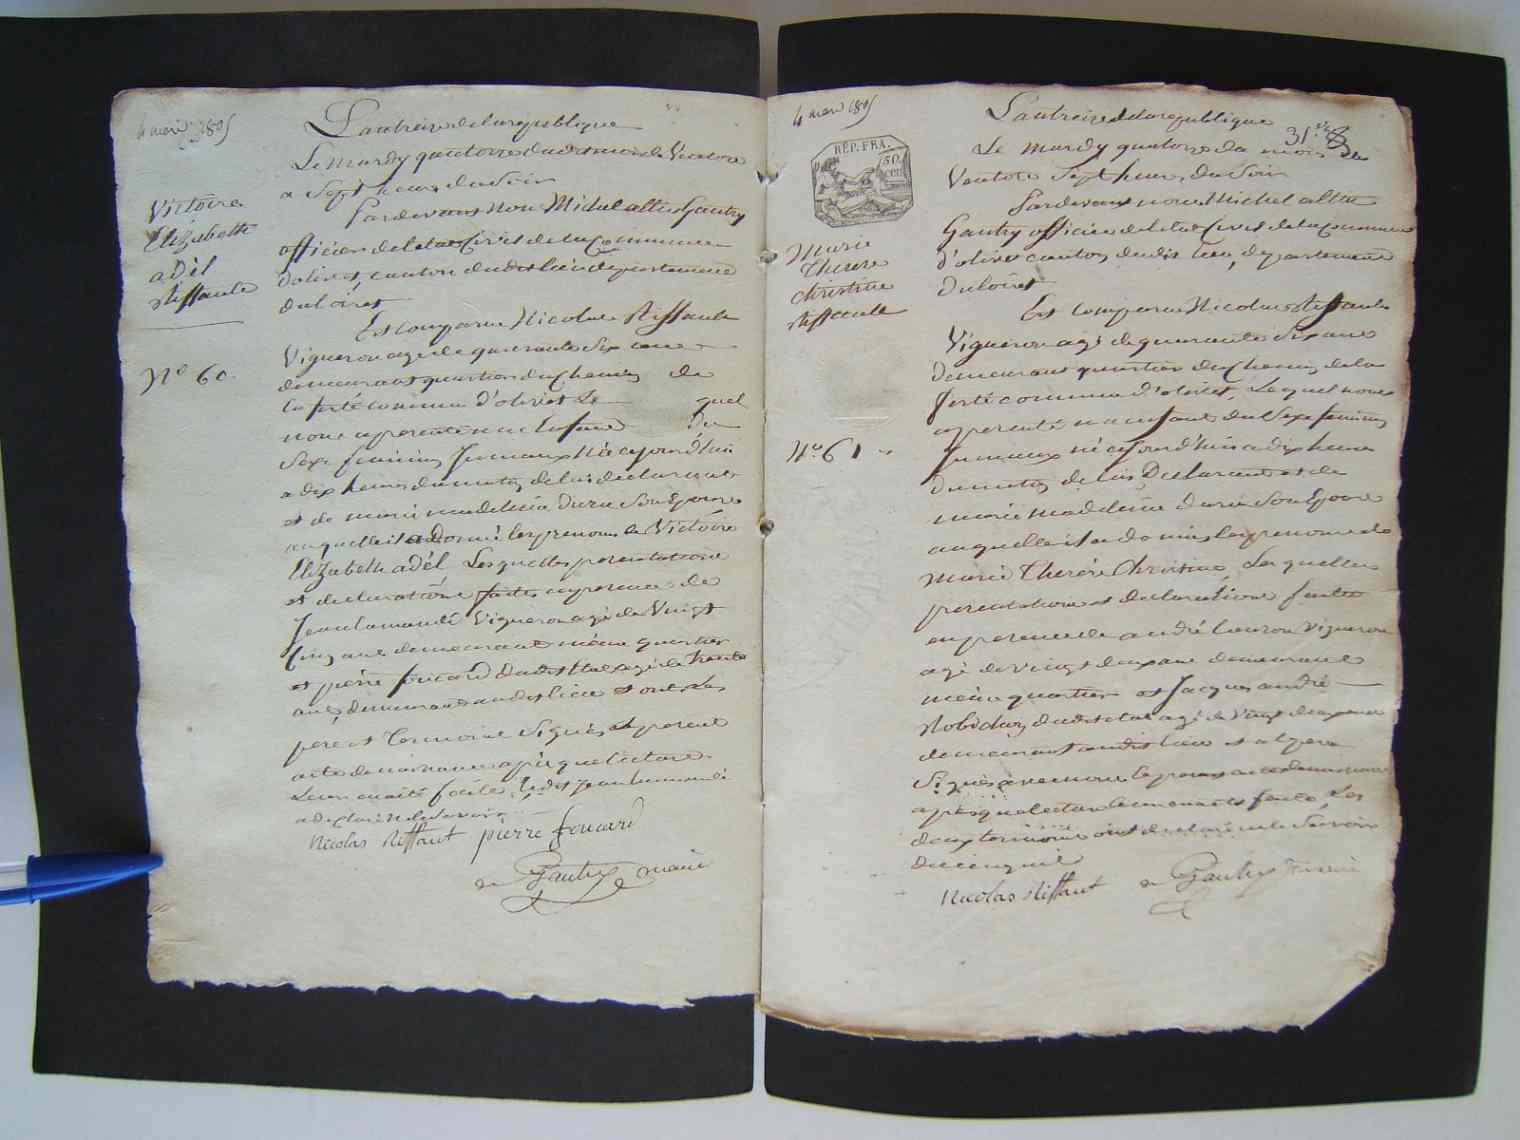 4 mars 1805
Victoire
Elizabeth
adél
Riffault
No 60.
L'an treize de la republique
Le mardy quatorze dudit mois de Ventose
a Sept heures du Soir
Pardevant Nous Michel altin Gautry
officier de l'etat Civil de la Commune
d'olivet, canton dudit lieu departement
du loiret
Est comparu Nicolas Riffault
Vigneron agé de quarante Six ans
demeurant quartier du Chemin de
la ferté commune d'olivet Le quel
nous a presenté un Enfant du
Sexe feminin Jumeaux Né ce jourd'hui
a dix heures du matin de lui declarant
et de marie madeleine Durie Son Epouse
au quelle il a donné les prenoms de Victoire
Elizabeth adél Les quelles presentations
et declarations faites en presence de
Jean lamandé Vigneron agé de Vingt
Cinq ans demeurant même quartier
et pierre foucard dudit Etat agé de trente
ans, demeurant audit lieu et ont Les
pere et temoins Signés le present
acte de naissance après que lecture
Leur en a été faite, le dit jean lamandé
a declaré ne le Savoir
Nicolas Riffaut pierre foucard
Gautry maire
4 mars 1805
REP. FRA.
50
CEN.
Marie
Therese
Christine
Riffault
No. 61
31
L'an treize de la republique
Le mardy quatorze du mois de
Ventose Sept heures du Soir
Pardevant nous Michel altin
Gautry officier de l'etat Civil de la Commune
d'olivet canton dudit lieu, departement
du loiret
Est comparu Nicolas Riffault
Vigneron agé de quarante Six ans
demeurant quartier du Chemin de la
ferté commune d'olivet, Le quel nous
a presenté un enfant du Sexe feminin
Jumeaux né ce jourd'hui a dix heures
du matin de lui Declarant et de
marie madeleine durie Son Epouse
au quelle il a donné les prenoms de
Marie Therese Christine, Les quelles
presentations et declarations faites
en presence de andré Vigneron
agé de vingt deux ans demeurant
même quartier et Jacques andré
Robichon dudit etat agé de Vingt deux ans
demeurant audit lieu et a le pere
Signé avec nous le present acte de naissance
après que lecture leur en a été faite, Les
deux temoins ont declaré ne le Savoir
de ce enquis
Nicolas Riffaut Gautry maire